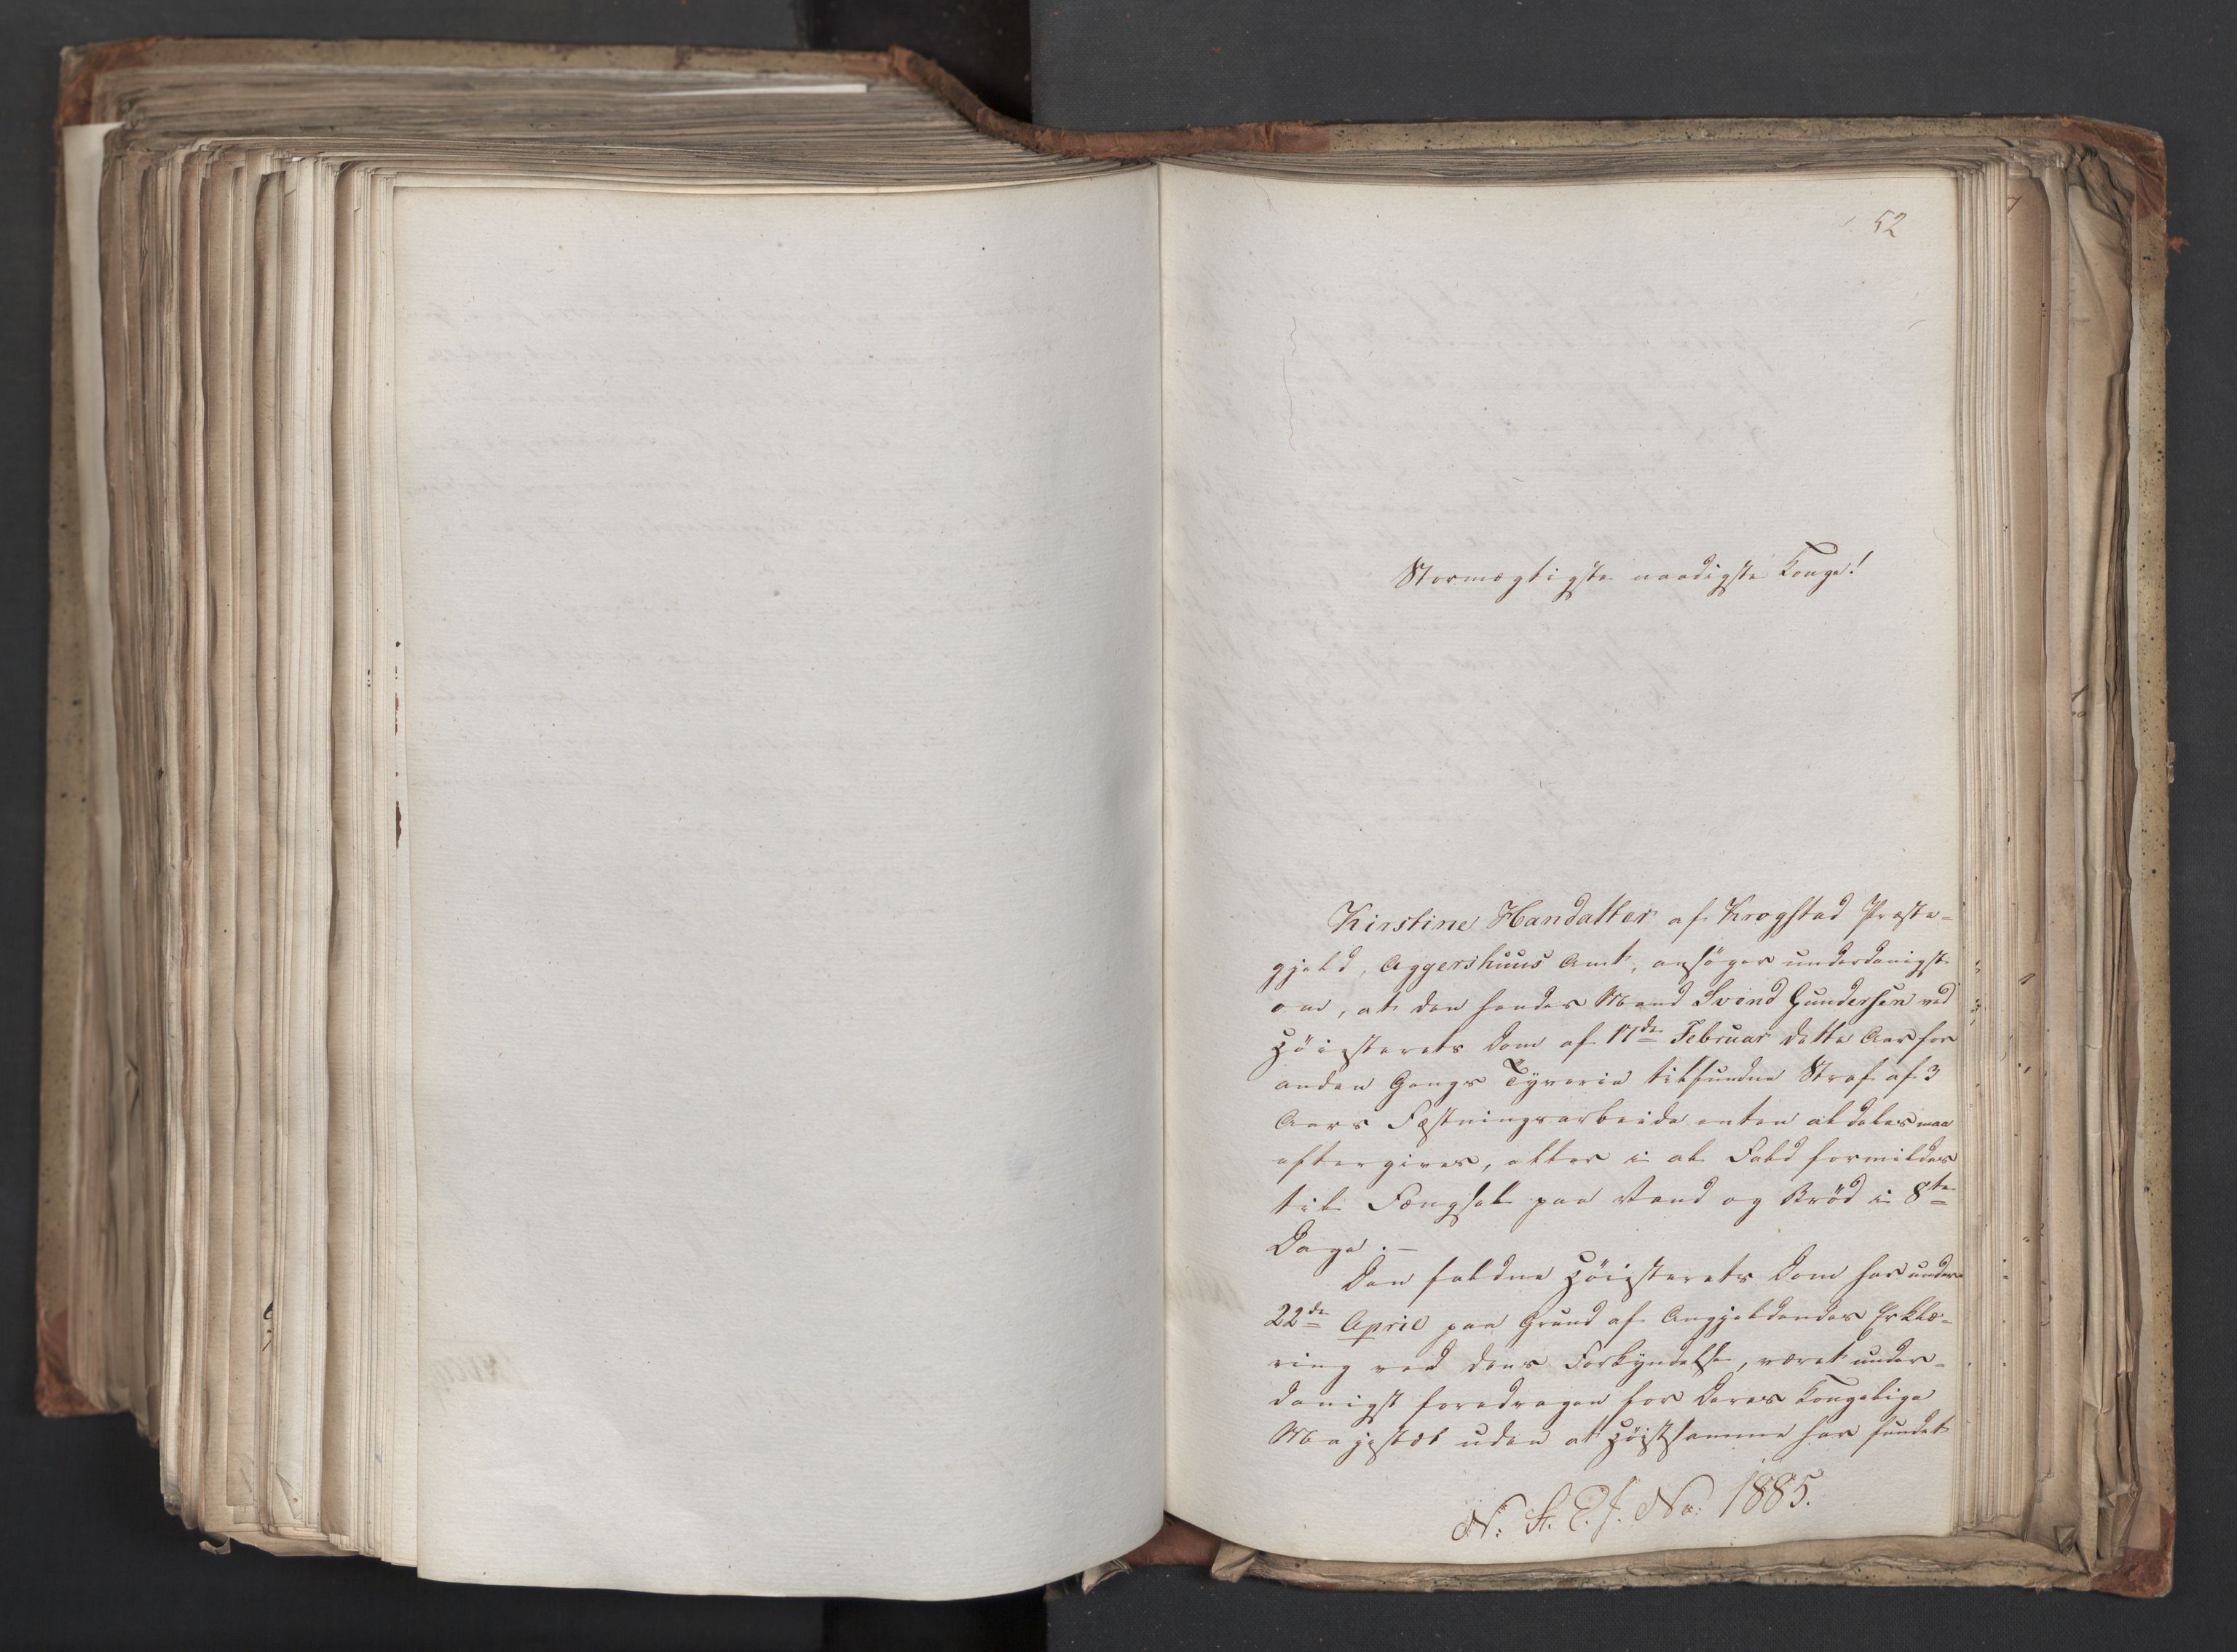 52
Stormægtigste naadigste Konge!
Kirstine Handatter af Krogstad Præste-
gjeld, Aggershuus Amt, ansöger underdanigst
om, at den hendes Mand Svend Gundersen ved
Höiesterets Dom af 17de Februar dette Aar for
anden Gangs Tyverie tilfundne Straf af 3
Aars Fæstningsarbeide enten aldeles maa
eftergives, eller i al Fald formildes
til Fængsel paa Vand og Bröd i 8te
Dage.-
Den faldne Höiesterets Dom har under
22de April paa Grund af Angjeldendes Erklæ-
ring ved dens Forkyndelse, været under-
danigst foredragen for Deres Kongelige
Majestæt uden at Höistsamme har fundet
N: St. E. J. No: 1885.